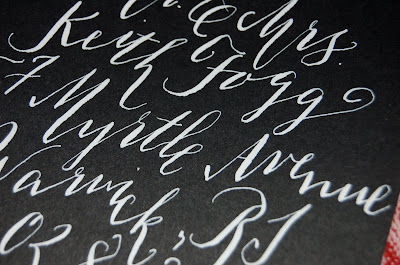 & Mrs.
Keith Fogg
7 Myrtle Avenue
Warwick, RI
02888